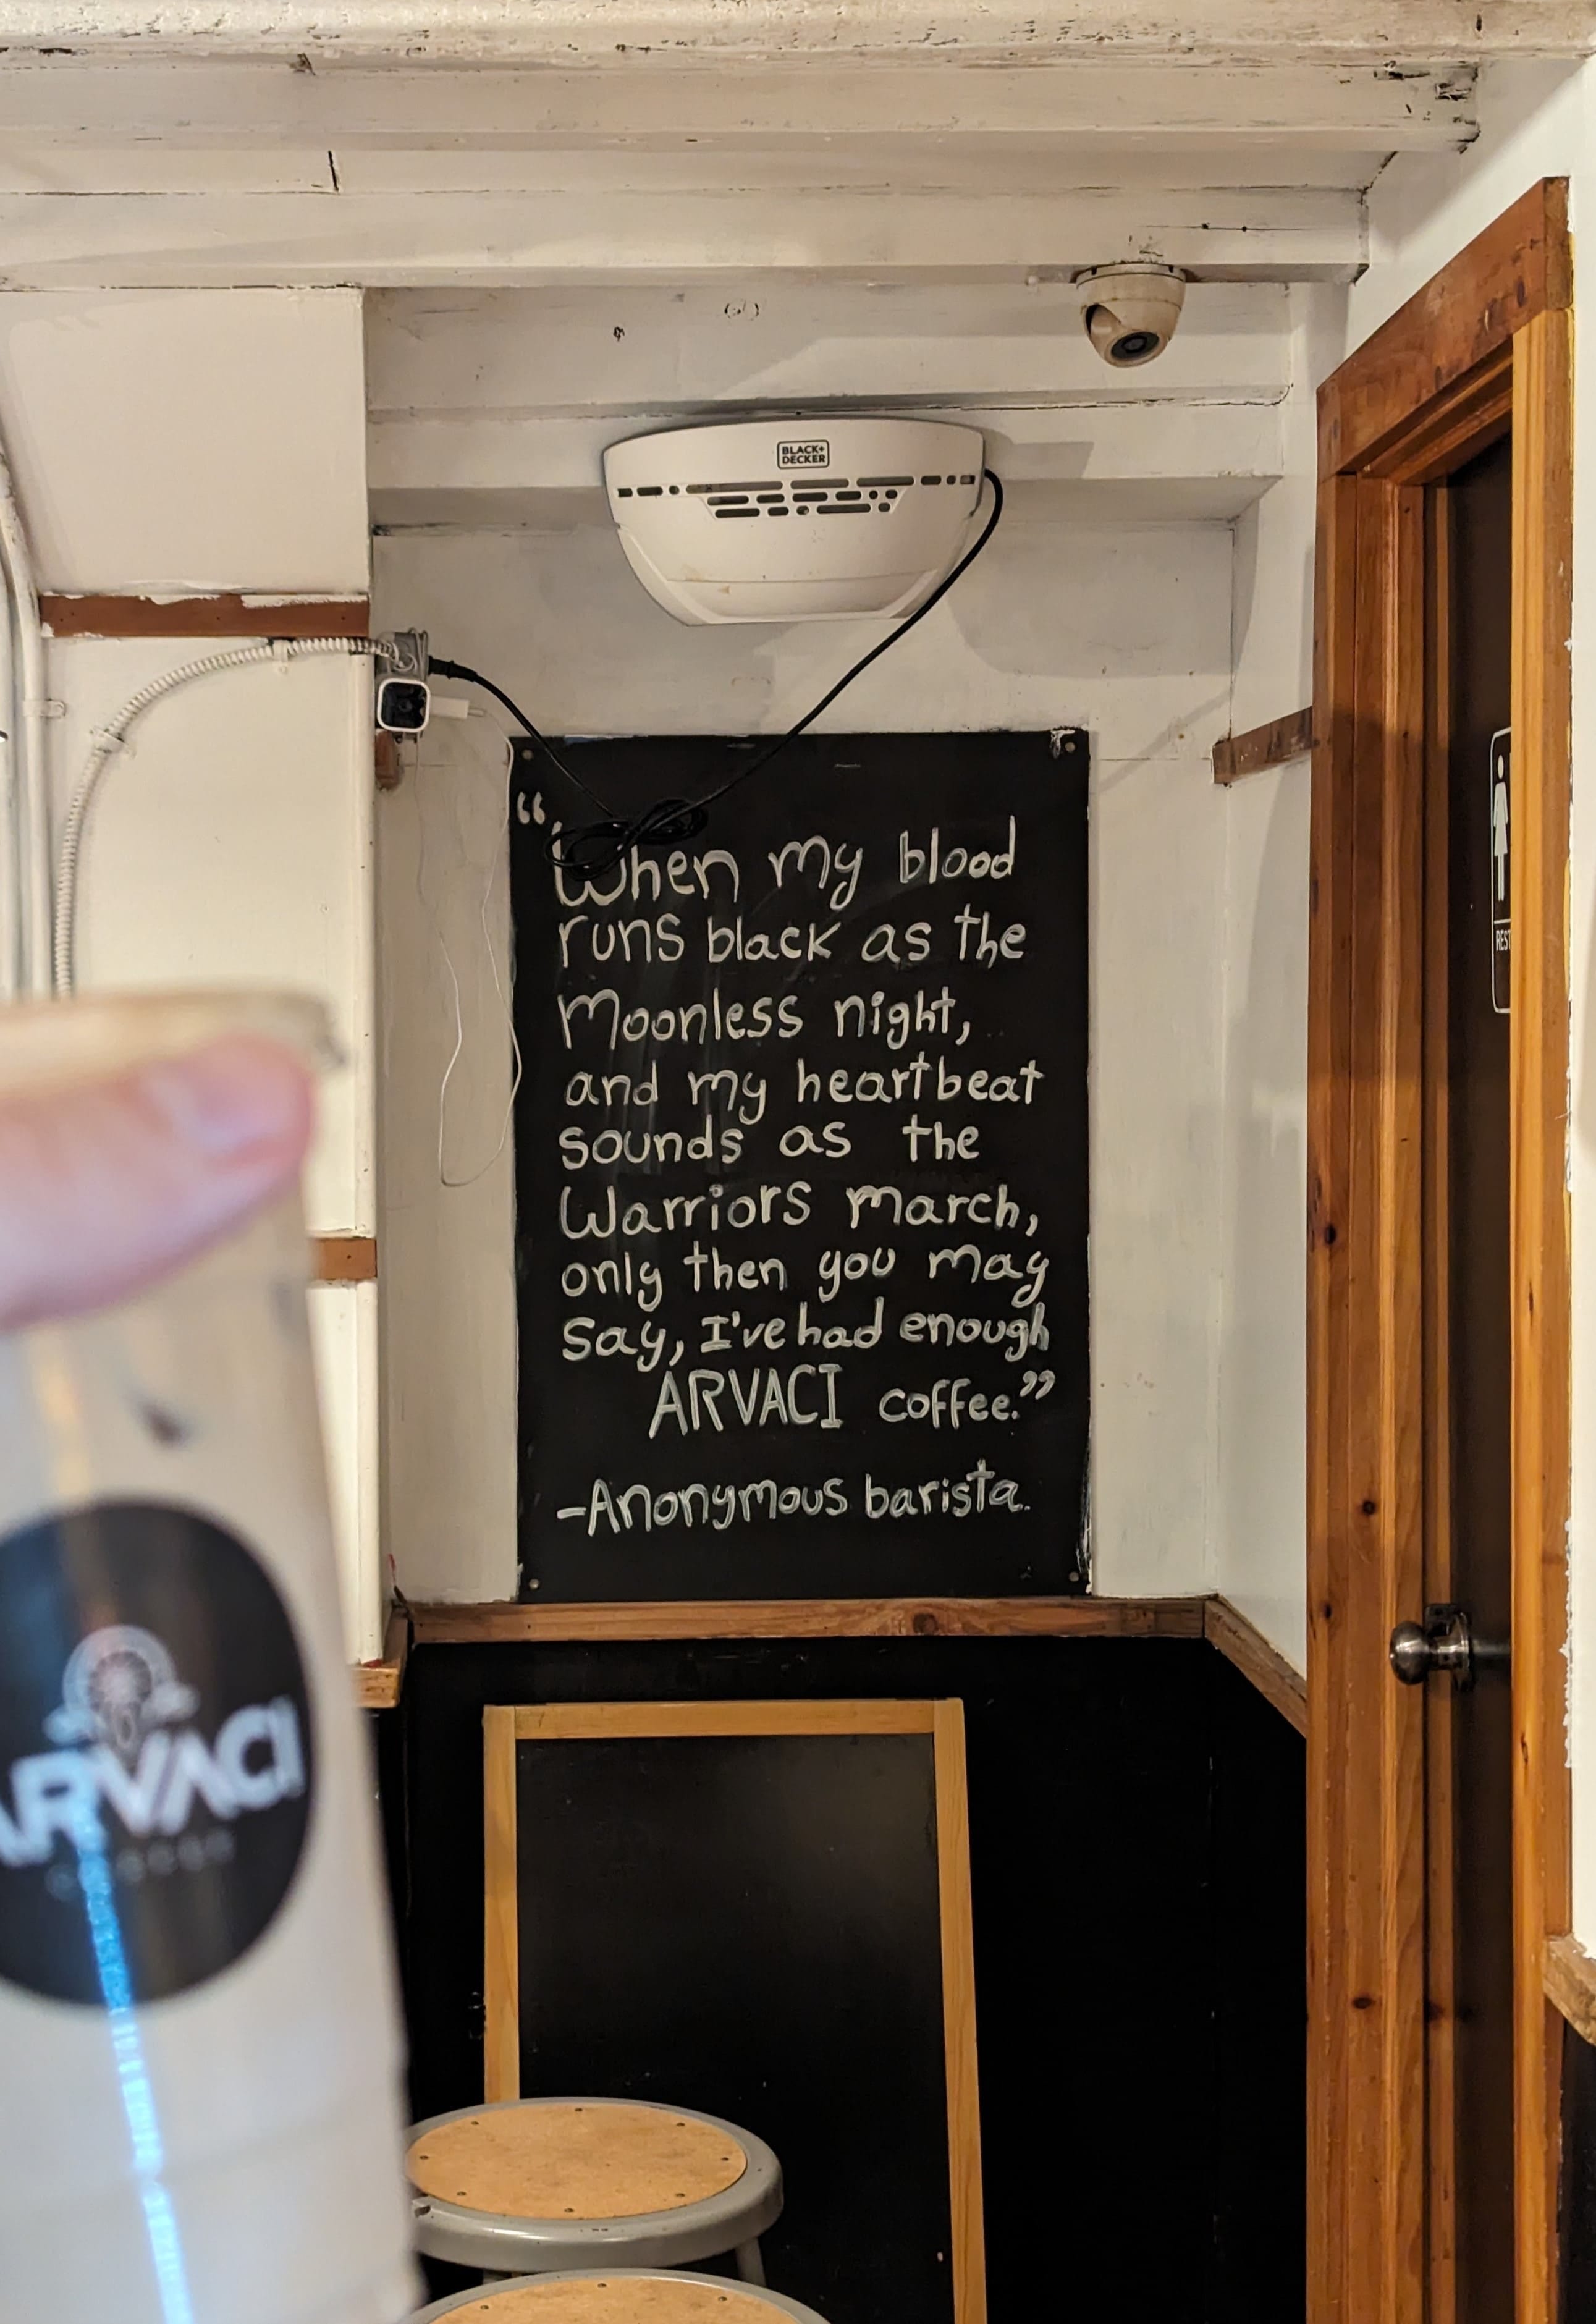 BLACK+
DECKER
“When my blood
runs black as the
Moonless night,
and my heartbeat
sounds as the
Warriors march,
only then you may
say, I've had enough
ARVACI coffee.”
-Anonymous barista.
REST
ARVACI